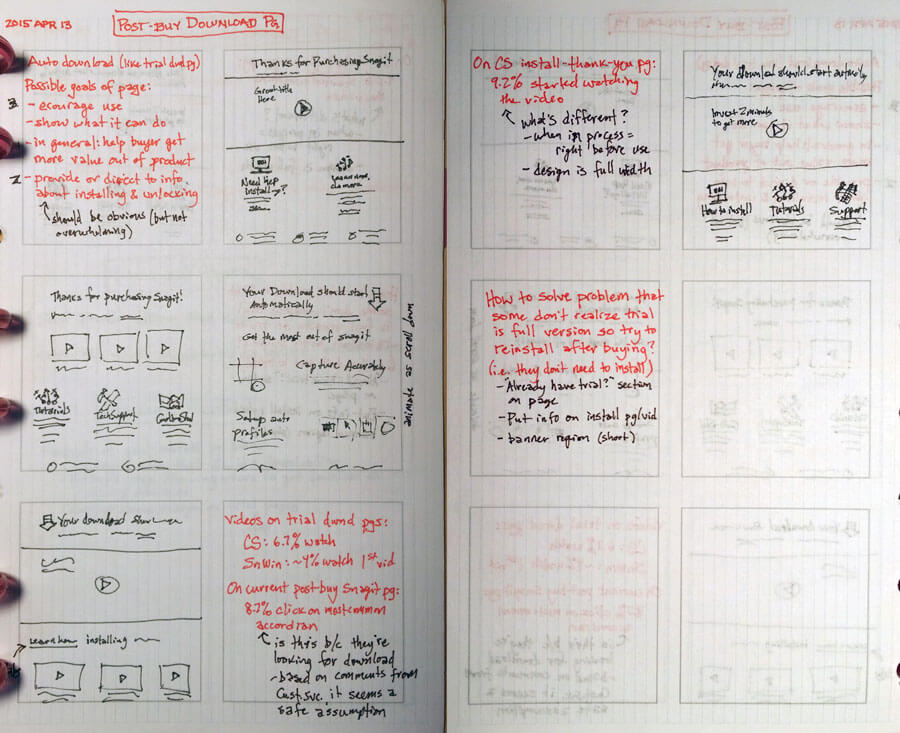 2015 APR 13
POST-BUY DOWNLOAD PG.
Auto download (like trial dwnld pg)
Possible goals of page:
3 - ecourage use
- show what it can do
- in general: help buyer get
more value out of product
- provide or direct to info.
about installing & unlocking
should be obvious (but not
overwhelming)
Thanks for Purchasing Snagit
Great title
Here
Need Help
Install?
Thanks for purchasing Snagit!
Tutorials
Tech Support
Your Download should start
Automatically
Get the most out of snagit
Capture Accurately
Setup auto
profiles
animate as scroll down
Your download
Learn how installing
Videos on trial dwnld pgs:
CS: 6.7% watch
SnWin: ~4% watch 1st vid
On current post-buy Snagit pg:
8.7% click on most common
accordian
is this b/c they're
looking for download
- based on comments from
Cust.svc. it seems a
safe assumption
On CS install-thank-you pg:
9.2% started watching
the video
what's different?
- when in process =
right before use
- design is full width
Your download should start
Invest 2 minutes
to get more
How to install
Tutorials
Support
How to solve problem that
some don't realize trial
is full version so try to
reinstall after buying?
(i.e. they don't need to install)
- "Already have trial?" section
on page
- Put info on install pg/vid
- banner region (short)